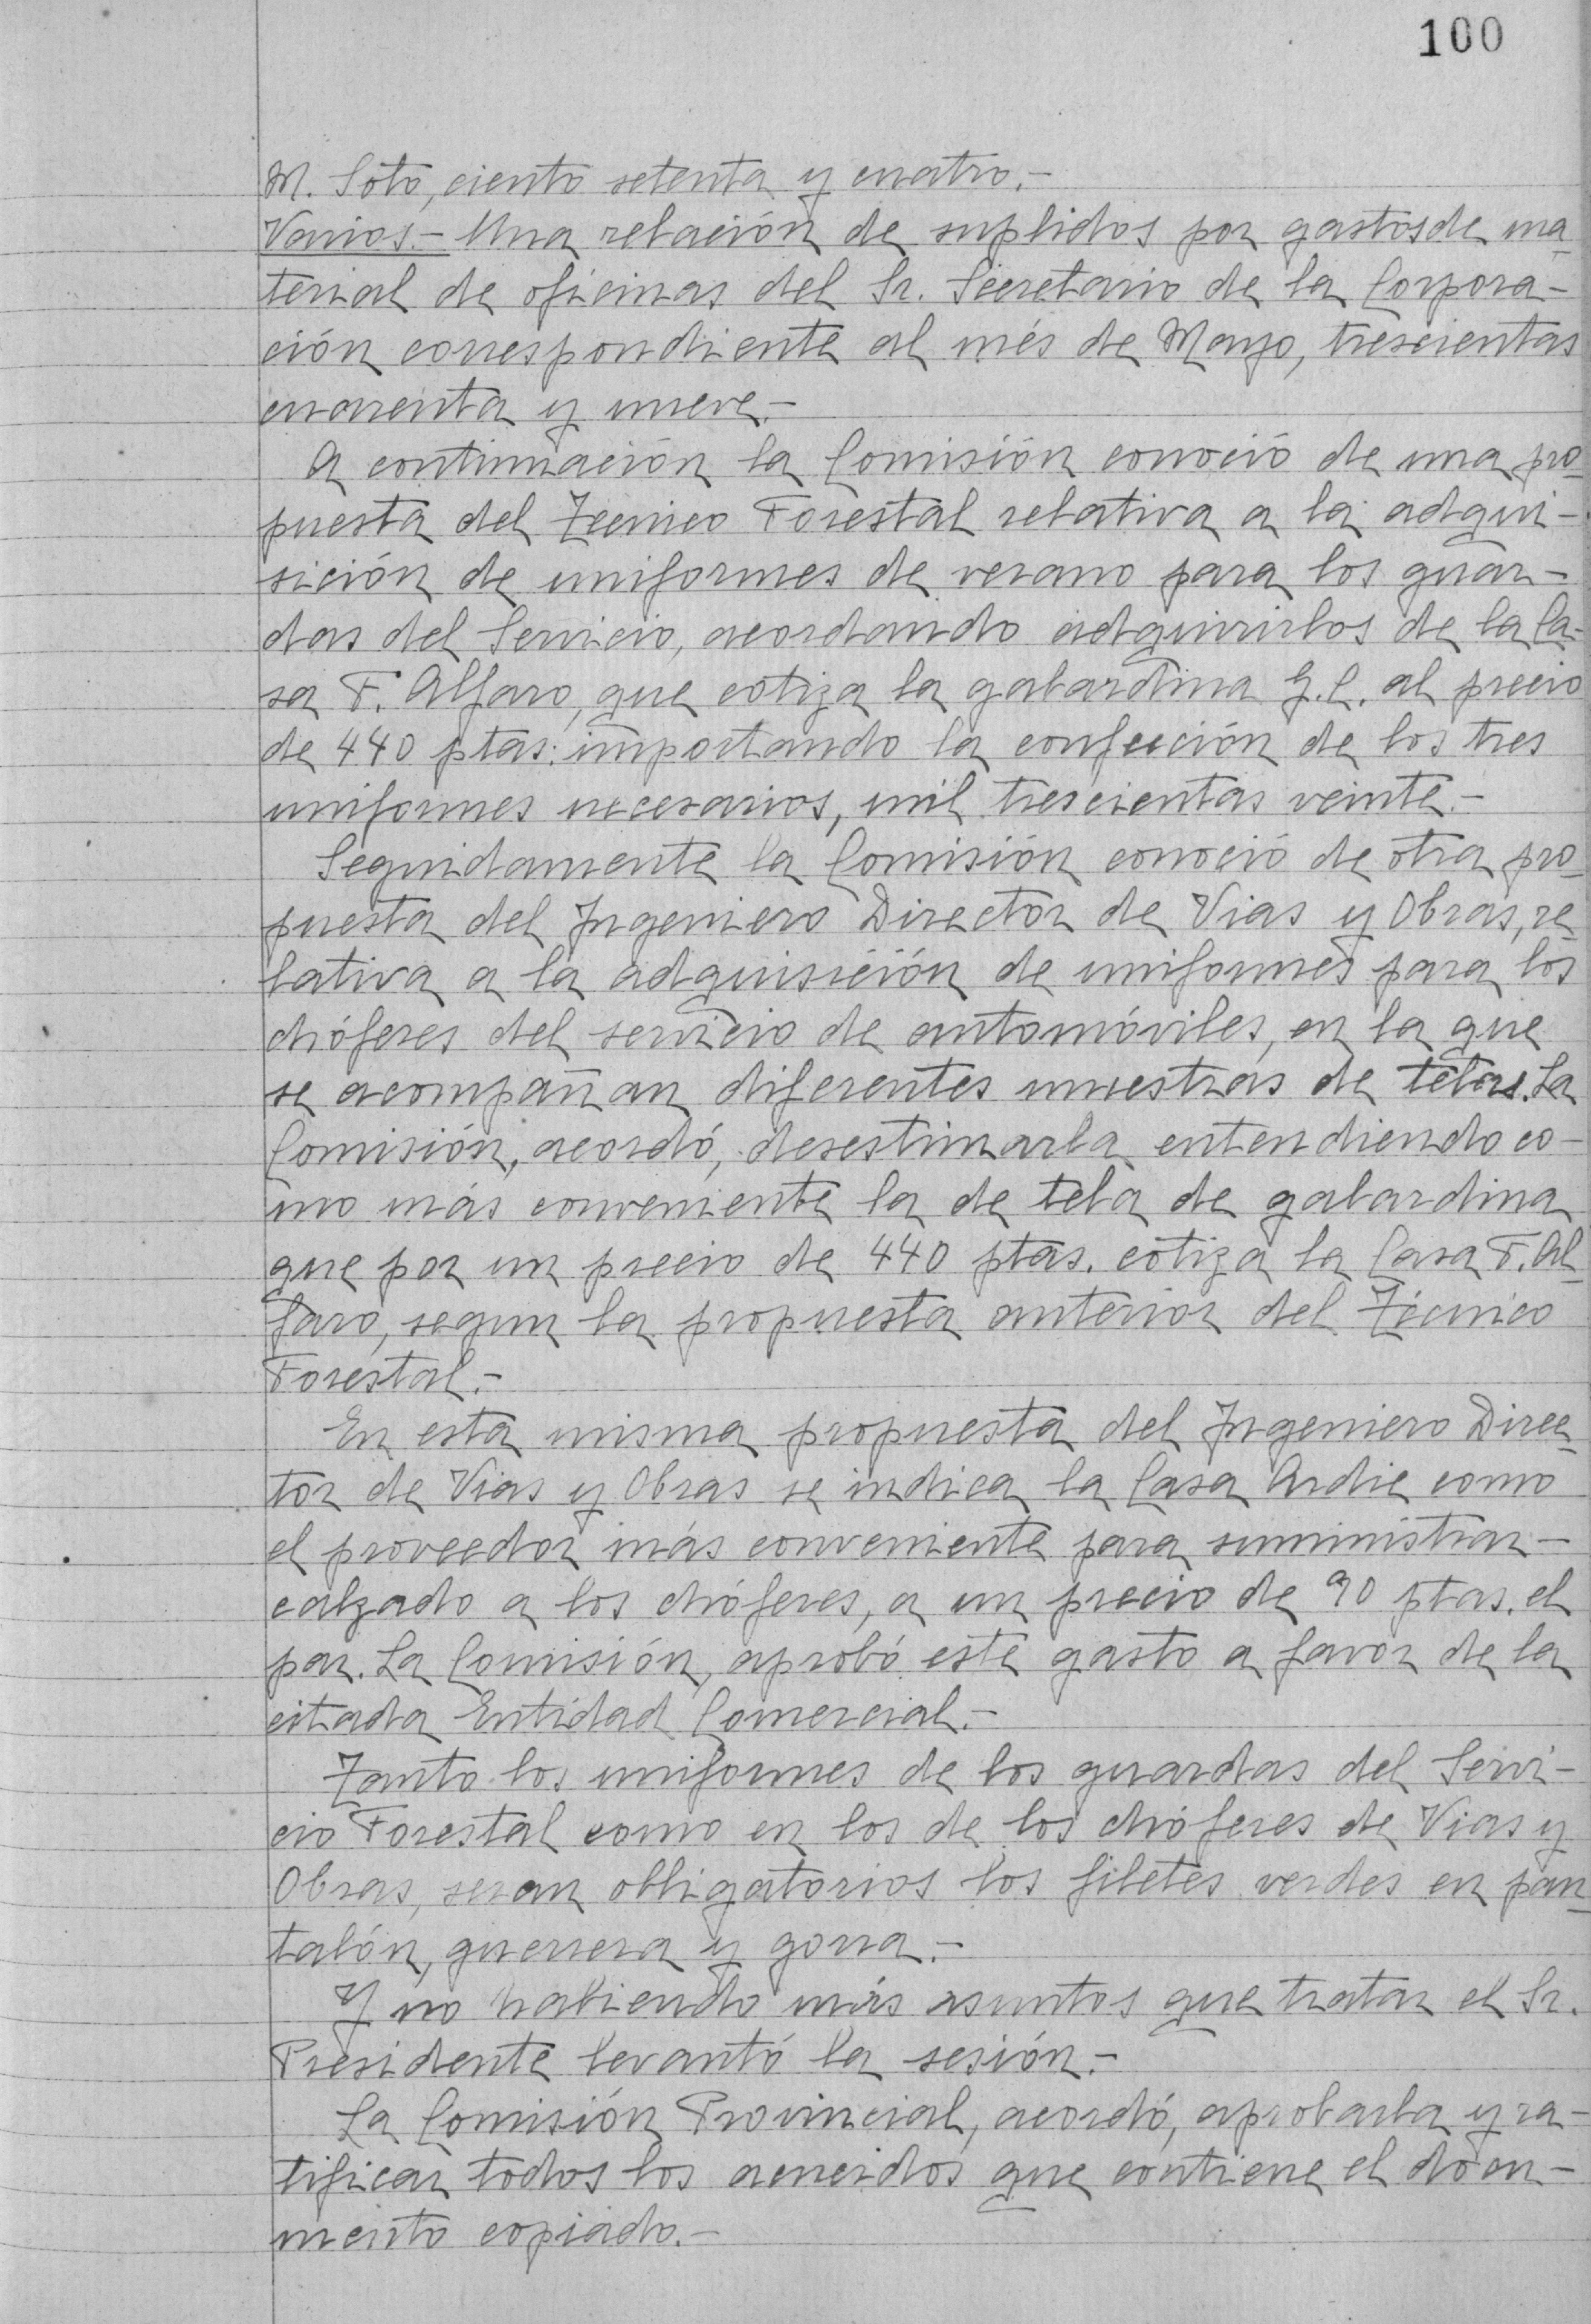 100
M. Soto, ciento setenta y cuatro.-
Varios.- Una relación de suplidos por gastos de ma
terial de oficinas del Sr. Secretario de la Corpora-
ción correspondiente al més de Mayo, trescientas
cuarenta y nueve.-
A continuación la Comisión conoció de una pro
puesta del Técnico Forestal relativa a la adqui-
sición de uniformes de verano para los guar-
das del Servicio, acordando adquirirlos de la Ca-
sa F. Alfaro, que cotiza la gabardina G.C. al precio
de 440 ptas: importando la confección de los tres
uniformes necesarios, mil trescientas veinte.-
Seguidamente la Comisión conoció de otra pro
puesta del Ingeniero Director de Vias y Obras, re
lativa a la adquisición de uniformes para los
chóferes del servicio de automóviles, en la que
se acompañan diferentes muestras de telas. La
Comisión, acordó, desestimarla entendiendo co-
mo más conveniente la de tela de gabardina
que por un precio de 440 ptas. cotiza la Casa F. Al
faro, segun la propuesta anterior del Técnico
Forestal.-
En esta misma propuesta del Ingeniero Direc
tor de Vias y Obras se indica la Casa Ardie como
el proveedor más conveniente para suministrar-
calzado a los chóferes, a un precio de 90 ptas. el
par. La Comisión, aprobó este gasto a favor de la
citada Entidad Comercial.-
Tanto los uniformes de los guardas del Servi-
cio Forestal como en los de los chóferes de Vias y
Obras, seran obligatorios los filetes verdes en pan
talón, guerrera y gorra.-
Y no habiendo más asuntos que tratar el Sr.
Presidente levantó la sesión.-
La Comisión Provincial, acordó, aprobarla y ra-
tificar todos los acuerdos que contiene el docu-
mento copiado.-